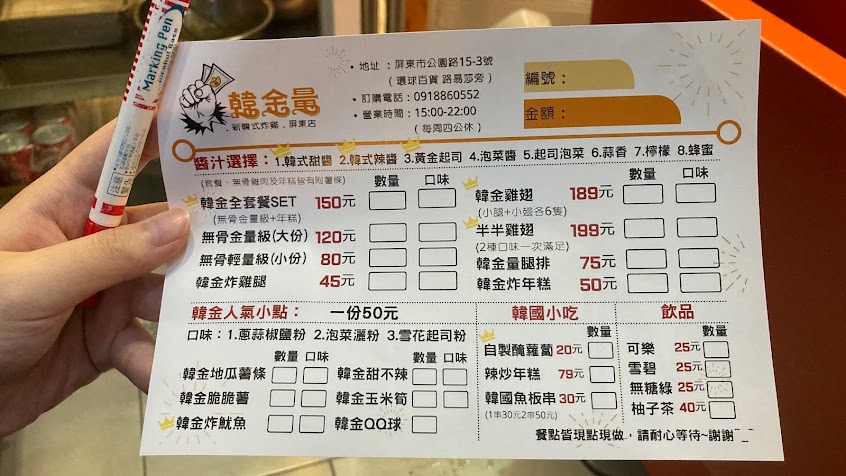 Marking Pen
Alcohol Base
韓金量
新韓式炸雞．屏東店
• 地址：屏東市公園路15-3號
（環球百貨 路易莎旁）
• 訂購電話：0918860552
• 營業時間：15:00-22:00
（每周四公休）
編號：
金額：
醬汁選擇：1.韓式甜醬 2.韓式辣醬 3.黃金起司 4.泡菜醬 5.起司泡菜 6.蒜香 7.檸檬 8.蜂蜜
(套餐、無骨雞肉及年糕皆有附薯條)
數量 口味
韓金全套餐SET 150元
(無骨金量級+年糕)
無骨金量級(大份) 120元
無骨輕量級(小份) 80元
韓金炸雞腿 45元
數量 口味
韓金雞翅 189元
(小腿+小翅各6隻)
半半雞翅 199元
(2種口味一次滿足)
韓金量腿排 75元
韓金炸年糕 50元
韓金人氣小點： 一份50元
口味：1.蔥蒜椒鹽粉 2.泡菜灑粉 3.雪花起司粉
數量 口味 數量 口味
韓金地瓜薯條 韓金甜不辣
韓金脆脆薯 韓金玉米筍
韓金炸魷魚 韓金QQ球
韓國小吃
數量
自製醃蘿蔔 20元
辣炒年糕 79元
韓國魚板串 30元
(1串30元2串50元)
飲品
數量
可樂 25元
雪碧 25元
無糖綠 25元
柚子茶 40元
餐點皆現點現做，請耐心等待~謝謝ˉ_ˉ